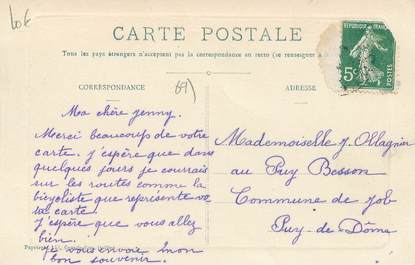 10€
CARTE POSTALE
Tous les pays étrangers n'acceptent pas la correspondance au recto (se renseigner à
CORRESPONDANCE
69)
ADRESSE
REPUBLIQUE FRANC
5c
POSTES
Ma chère Jenny.
Merci beaucoup de votre
carte. J'espère que dans
quelques jours je courrais
sur les routes comme la
bicycliste que représente vo
tre carte.
J'espère que vous allez
bien.
je vous envoie mon
bon souvenir.
Mademoiselle J. Ollagnier
au Puy Besson
Commune de Job
Puy-de-Dôme